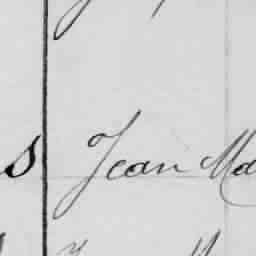 s Jean Ma